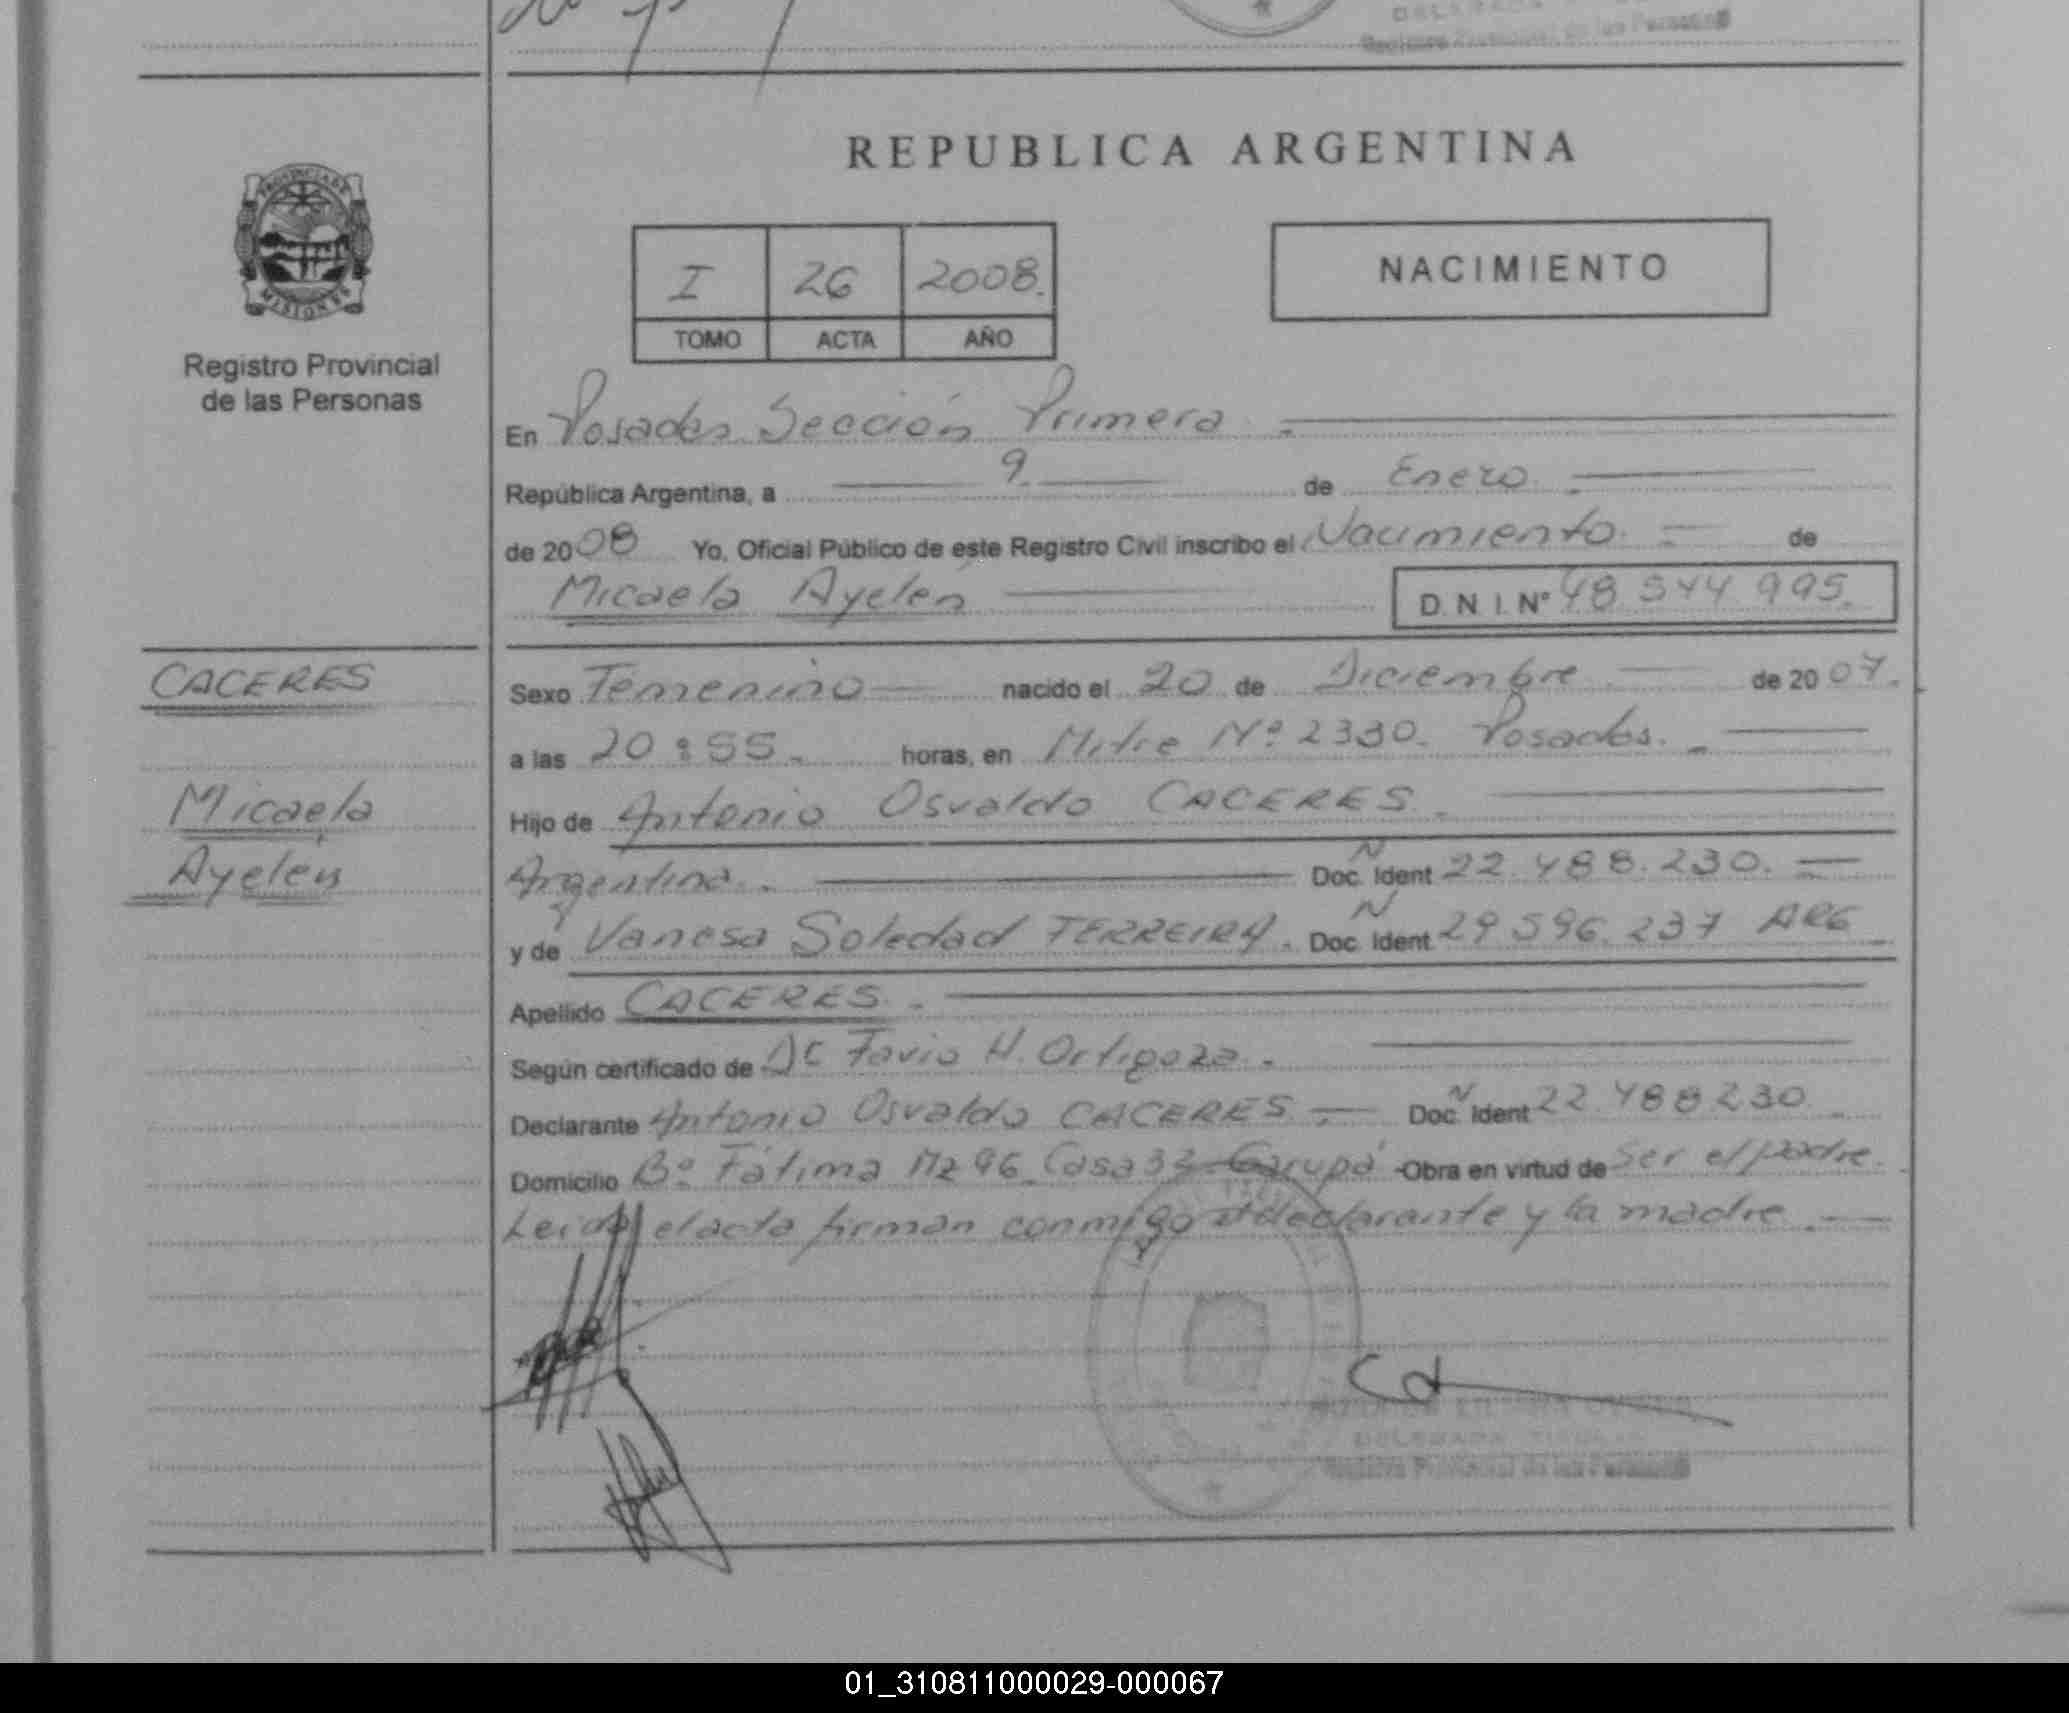 REPUBLICA ARGENTINA
PROVINCIA DE
MISIONES
Registro Provincial
de las Personas
I 26 2008.
TOMO ACTA AÑO
NACIMIENTO
En Posadas Sección Primera.
República Argentina, a 9 de Enero
de 2008 Yo, Oficial Público de este Registro Civil inscribo el Nacimiento. de
Micaela Ayelén D.N.I.Nº 48 544 995.
CACERES
Micaela
Ayelén
Sexo Femenino nacido el 20 de Diciembre de 2007.
a las 20:55. horas, en Mitre Nº 2330. Posadas.
Hijo de Antonio Osvaldo CACERES.
Argentina. Doc. Ident N 22.488.230.
y de Vanesa Soledad FERREIRA. Doc. Ident N 29 596.237 ARG
Apellido CACERES.
Según certificado de Dr Favio H. Ortigoza.
Declarante Antonio Osvaldo CACERES Doc. Ident N 22 488 230
Domicilio Bº Fátima Mz 96 Casa 33 Garupá Obra en virtud de ser el padre.
Leida el acta firman conmigo el declarante y la madre.
DELEGADA TITULAR
Registro Provincial de las Personas
01_310811000029-000067